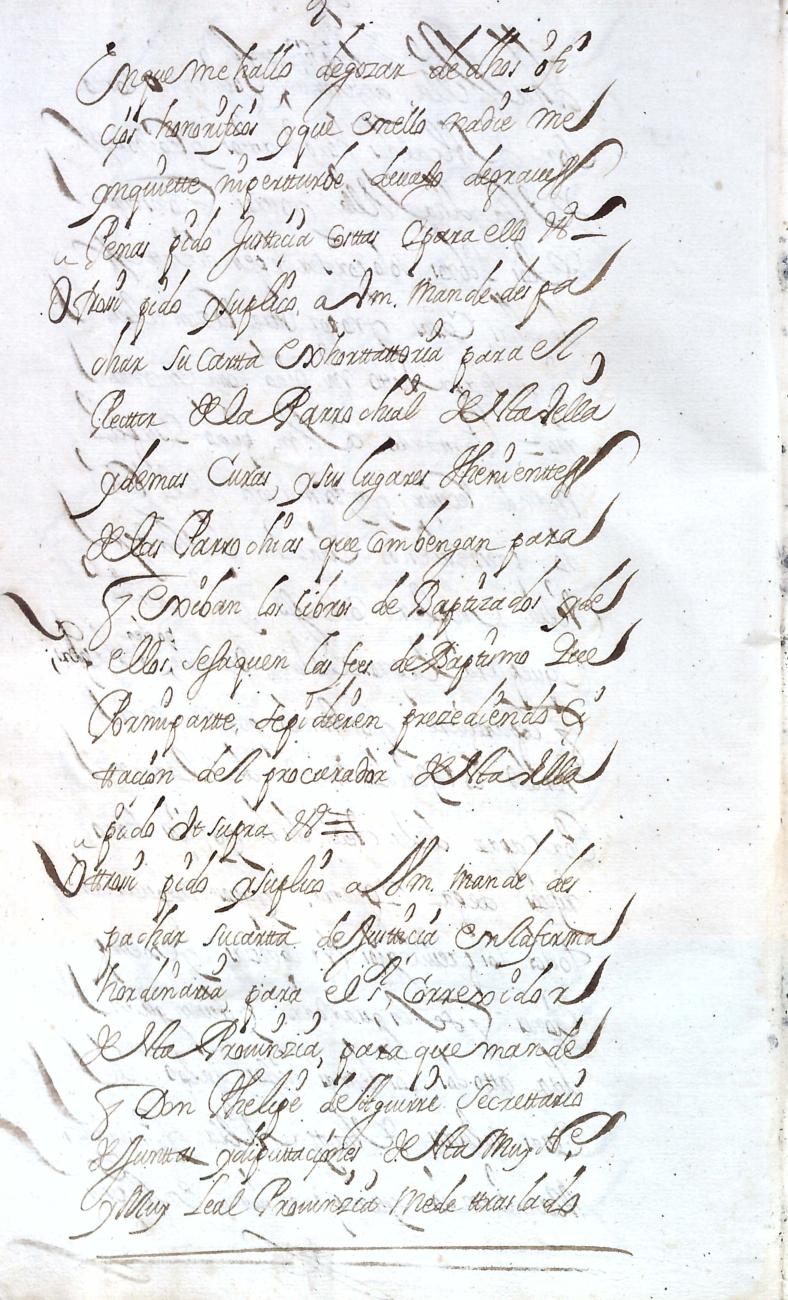 Enque me hallo degozar de dhos ofi
cios honorificos y que enello nadie me
ynquiette niperturbe devajo degraves
Penas pido Justicia costas y para ello &ª
Ottrosi pido y suplico a Vm. mande despa
char su Cartta Exhorttattoria para el
Rector de la Parrochial de Nta Villa
y demas Curas, y sus lugares thenienttes
de las Parrochias que combengan para
q Exiban los libros de Baptizados y de
ellos, sesaquen las fees de Baptismo que
Por mi partte, se pidieren prezediendo Ci
ttacion del procurador de Nta Villa
pido Ut supra &ª
Ottrosi pido y suplico a Vm. mande des
pachar su cartta de Justticia en la forma
hordinaria para el Sr Correxidor
de Nta Provinzia, para que mande
q Dn Phelipe de Aguirre Secrettario
de Junttas y diputtaciones de Nta Muy Ne
y Muy Leal Provinzia me de ttraslado